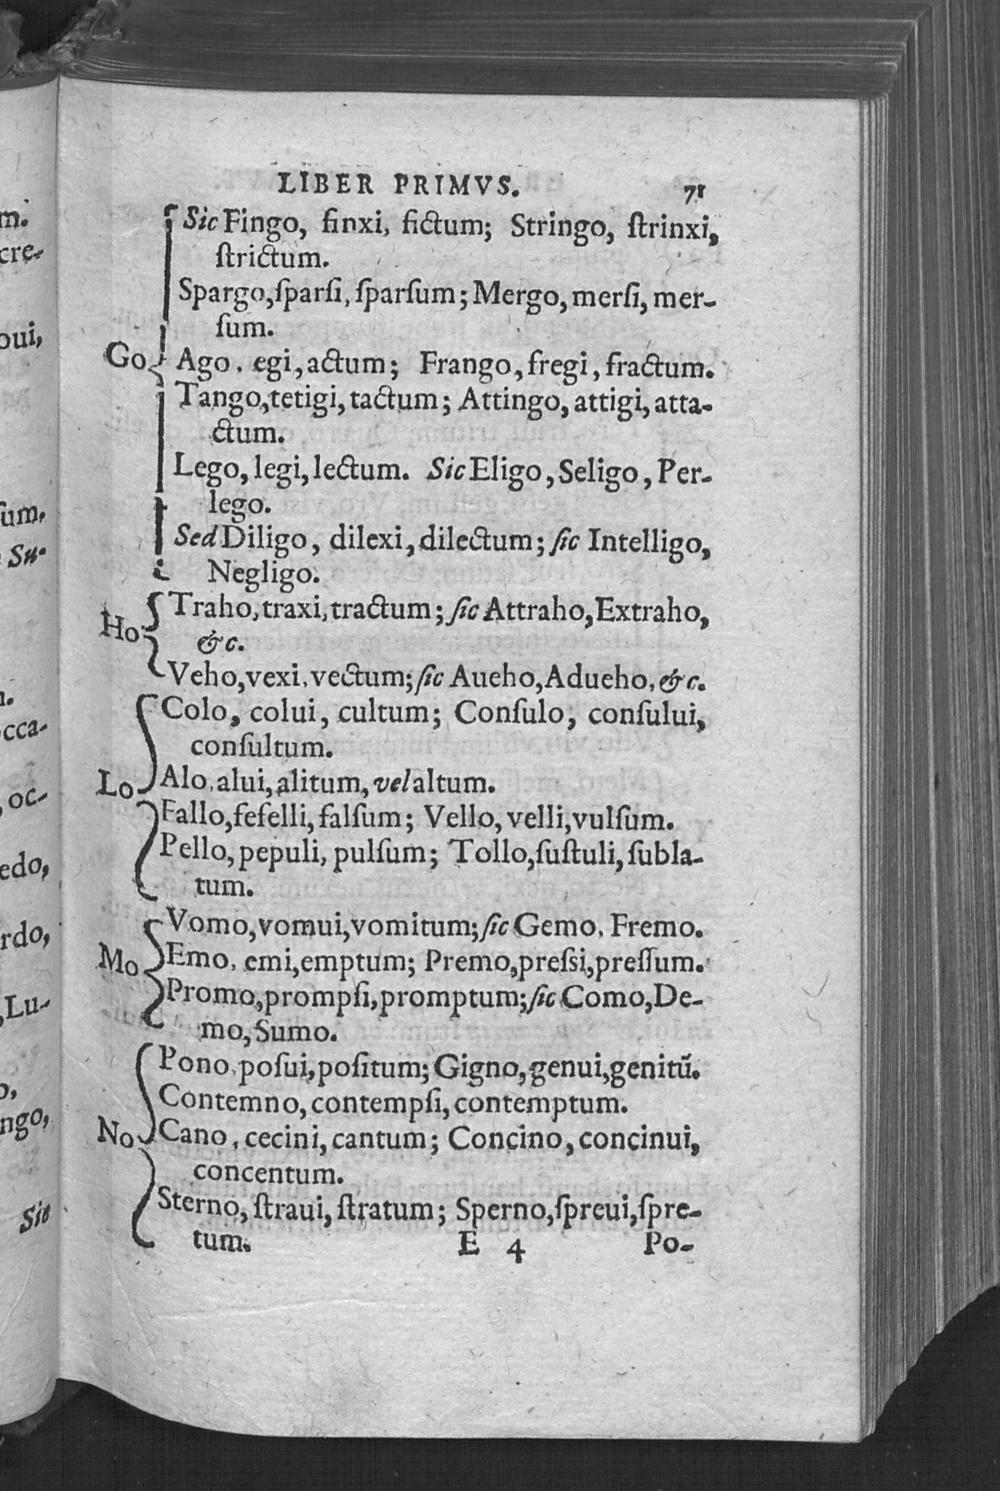 LIBER PRIMVS. 71
Sic Fingo, finxi, fictum; Stringo, ſtrinxi,
ſtrictum.
Spargo, ſparſi, ſparſum; Mergo, merſi, mer-
ſum.
Go Ago, egi, actum; Frango, fregi, fractum.
Tango, tetigi, tactum; Attingo, attigi, atta-
ctum.
Lego, legi, lectum. Sic Eligo, Seligo, Per-
lego.
Sed Diligo, dilexi, dilectum; ſic Intelligo,
Negligo.
Traho, traxi, tractum; ſic Attraho, Extraho,
Ho &c.
Veho, vexi, vectum; ſic Aueho, Adueho, &c.
Colo, colui, cultum; Conſulo, conſului,
conſultum.
Lo Alo, alui, alitum, vel altum.
Fallo, fefelli, falſum; Vello, velli, vulſum.
Pello, pepuli, pulſum; Tollo, ſuſtuli, ſubla-
tum.
Vomo, vomui, vomitum; ſic Gemo, Fremo.
Mo Emo, emi, emptum; Premo, preſsi, preſſum.
Promo, prompſi, promptum; ſic Como, De-
mo, Sumo.
Pono, poſui, poſitum; Gigno, genui, genitũ.
Contemno, contempſi, contemptum.
No Cano, cecini, cantum; Concino, concinui,
concentum.
Sterno, ſtraui, ſtratum; Sperno, ſpreui, ſpre-
tum. E 4 Po-